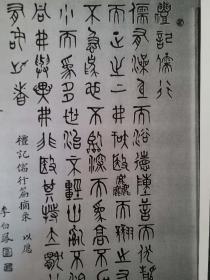 禮記儒行
儒有澡身而浴德陳言而伏靜
而正之上弗知也麤而翹之又
不急為也不臨深而為高不加
小而為多世治不輕世亂不沮
同弗與異弗非也其特立獨行
有如此者
禮記儒行篇摘录 以應
李伯